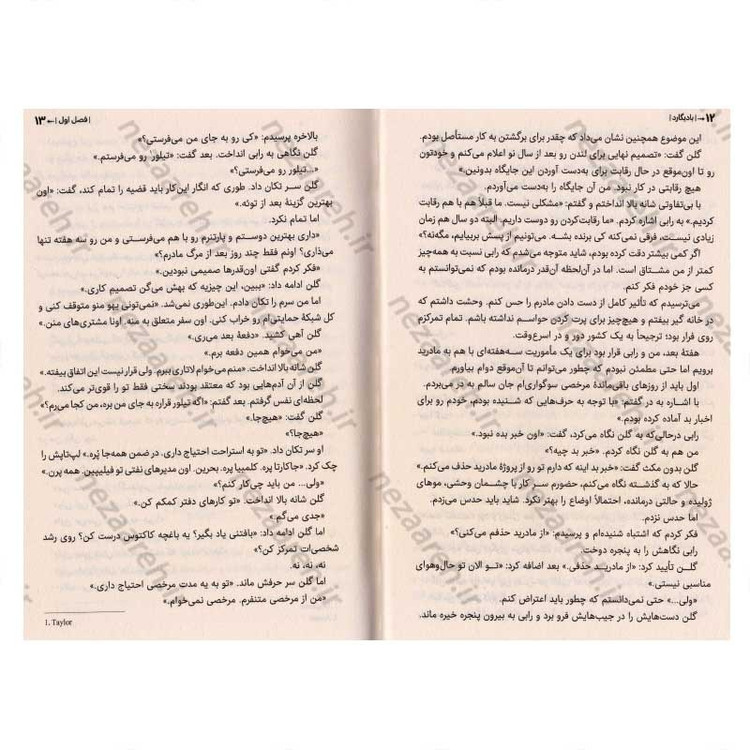 ۱۲ → | بادیگارد |
این موضوع همچنین نشان می‌داد که چقدر برای برگشتن به کار مستأصل بودم.
گلن گفت: «تصمیم نهایی برای لندن رو بعد از سال نو اعلام می‌کنم و خودتون
رو تا اون‌موقع در حال رقابت برای به‌دست آوردن این جایگاه بدونین.»
هیچ رقابتی در کار نبود. من آن جایگاه را به‌دست می‌آوردم.
با بی‌تفاوتی شانه بالا انداختم و گفتم: «مشکلی نیست. ما قبلاً هم با هم رقابت
کردیم.» به رابی اشاره کردم. «ما رقابت‌کردن رو دوست داریم. البته دو سال هم زمان
زیادی نیست، فرقی نمی‌کنه کی برنده بشه. می‌تونیم از پسش بربیایم، مگه‌نه؟»
اگر کمی بیشتر دقت کرده بودم، شاید متوجه می‌شدم که رابی نسبت به همه‌چیز
کمتر از من مشتاق است. اما در آن‌لحظه آن‌قدر درمانده بودم که نمی‌توانستم به
کسی جز خودم فکر کنم.
می‌ترسیدم که تأثیر کامل از دست دادن مادرم را حس کنم. وحشت داشتم که
در خانه گیر بیفتم و هیچ‌چیز برای پرت کردن حواسم نداشته باشم. تمام تمرکزم
روی فرار بود؛ ترجیحاً به یک کشور دور و در اسرع‌وقت.
هفتهٔ بعد، من و رابی قرار بود برای یک مأموریت سه‌هفته‌ای با هم به مادرید
برویم اما حتی مطمئن نبودم که چطور می‌توانم تا آن‌موقع دوام بیاورم.
اول باید از روزهای باقی‌ماندهٔ مرخصی سوگواری‌ام جان سالم به در می‌بردم.
با اشاره به در گفتم: «با توجه به حرف‌هایی که شنیده بودم، خودم رو برای
اخبار بد آماده کرده بودم.»
رابی درحالی‌که به گلن نگاه می‌کرد، گفت: «اون خبر بده نبود.»
من هم به گلن نگاه کردم. «خبر بد چیه؟»
گلن بدون مکث گفت: «خبر بد اینه که دارم تو رو از پروژهٔ مادرید حذف می‌کنم.»
حالا که به گذشته نگاه می‌کنم، حضورم سر کار با چشمان وحشی، موهای
ژولیده و حالتی درمانده، احتمالاً اوضاع را بهتر نکرد. شاید باید حدس می‌زدم.
اما حدس نزدم.
فکر کردم که اشتباه شنیده‌ام و پرسیدم: «از مادرید حذفم می‌کنی؟»
رابی نگاهش را به پنجره دوخت.
گلن تأیید کرد: «از مادرید حذفی.» بعد اضافه کرد: «تو الان تو حال‌وهوای
مناسبی نیستی.»
«ولی...» حتی نمی‌دانستم که چطور باید اعتراض کنم.
گلن دست‌هایش را در جیب‌هایش فرو برد و رابی به بیرون پنجره خیره ماند.
| فصل اول | ← ۱۳
بالاخره پرسیدم: «کی رو به جای من می‌فرستی؟»
گلن نگاهی به رابی انداخت. بعد گفت: «تیلور رو می‌فرستم.»
«...تیلور رو می‌فرستی؟»
گلن سر تکان داد. طوری که انگار این‌کار باید قضیه را تمام کند، گفت: «اون
بهترین گزینهٔ بعد از توئه.»
اما تمام نکرد.
«داری بهترین دوستم و پارتنرم رو با هم می‌فرستی و من رو سه هفته تنها
می‌ذاری؟ اونم فقط چند روز بعد از مرگ مادرم؟»
«فکر کردم گفتی اون‌قدرها صمیمی نبودین.»
گلن ادامه داد: «ببین، این چیزیه که بهش می‌گن تصمیم کاری.»
اما من سرم را تکان دادم. این‌طوری نمی‌شد. «نمی‌تونی یهو منو متوقف کنی و
کل شبکهٔ حمایتی‌ام رو خراب کنی. اون سفر متعلق به منه. اونا مشتری‌های منن.»
گلن آهی کشید. «دفعهٔ بعد می‌ری.»
«من می‌خوام همین دفعه برم.»
گلن شانه بالا انداخت. «منم می‌خوام لاتاری ببرم. ولی قرار نیست این اتفاق بیفته.»
گلن از آن آدم‌هایی بود که معتقد بودند سختی فقط تو را قوی‌تر می‌کند.
لحظه‌ای نفس گرفتم. بعد گفتم: «اگه تیلور قراره به جای من بره، من کجا می‌رم؟»
گلن گفت: «هیچ‌جا.»
«هیچ‌جا؟»
او سر تکان داد. «تو به استراحت احتیاج داری. در ضمن همه‌جا پُره.» لپ‌تاپش را
چک کرد. «جاکارتا پره. کلمبیا پره. بحرین. اون مدیرهای نفتی تو فیلیپین. همه پرن.»
«ولی... من باید چی‌کار کنم؟»
گلن شانه بالا انداخت. «تو کارهای دفتر کمکم کن.»
«جدی می‌گم.»
اما گلن ادامه داد: «بافتنی یاد بگیر؟ یه باغچه کاکتوس درست کن؟ روی رشد
شخصی‌ات تمرکز کن؟»
نه، نه، نه.
اما گلن سر حرفش ماند. «تو به یه مدت مرخصی احتیاج داری.»
«من از مرخصی متنفرم. مرخصی نمی‌خوام.»
1. Taylor
nezaareh.ir